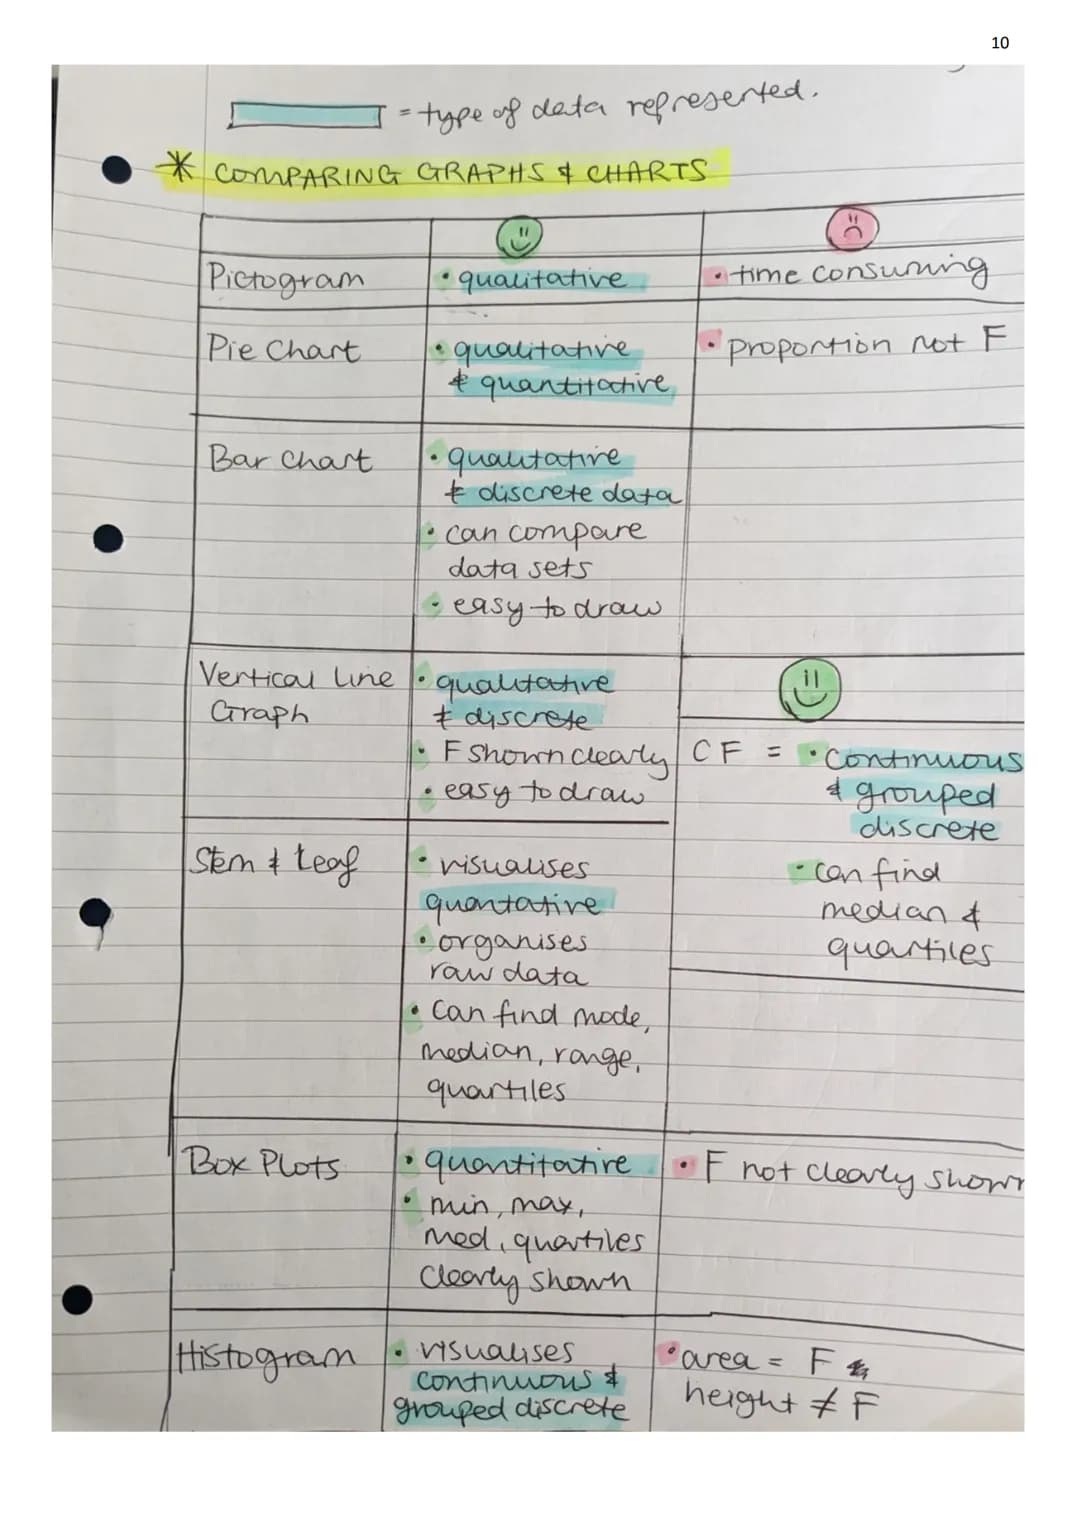 10
= type of data represented.
* COMPARING GRAPHS & CHARTS
Pictogram
• qualitative
• time consuming
Pie Chart
• qualitative
& quantitative
• proportion not F
Bar Chart
• qualitative
& discrete data
• can compare
data sets
• easy to draw
Vertical Line
Graph
• qualitative
& discrete
• F shown clearly
• easy to draw
CF = • Continuous
& grouped
discrete
• can find
median &
quartiles
Stem & Leaf
• visualises
quantative
• organises
raw data
• Can find mode,
median, range,
quartiles
Box Plots
• quantitative
• min, max,
med, quartiles
clearly shown
• F not clearly shown
Histogram
• visualises
continuous &
grouped discrete
• area = F
height ≠ F